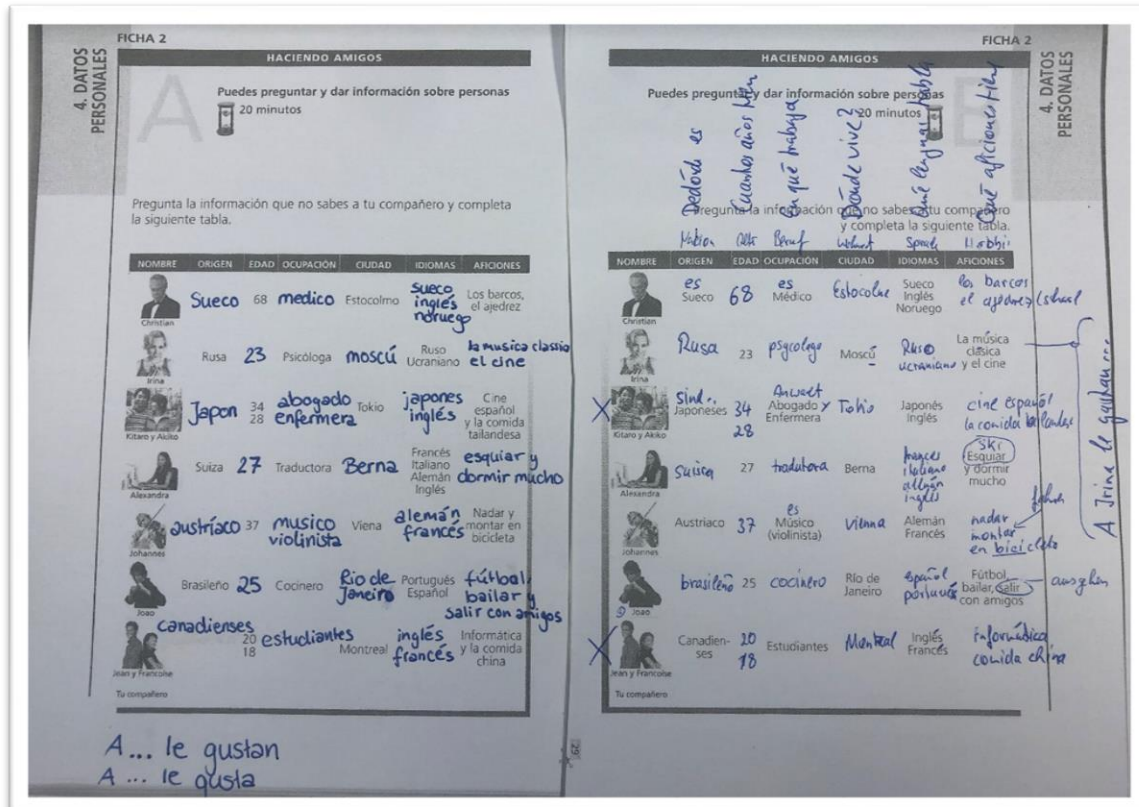 FICHA 2
HACIENDO AMIGOS
4. DATOS
PERSONALES
A
Puedes preguntar y dar información sobre personas
20 minutos
Pregunta la información que no sabes a tu compañero y completa
la siguiente tabla.
NOMBRE ORIGEN EDAD OCUPACIÓN CIUDAD IDIOMAS AFICIONES
Christian Sueco 68 medico Estocolmo sueco inglés noruego Los barcos, el ajedrez
Irina Rusa 23 Psicóloga moscú Ruso Ucraniano la musica classia el cine
Kitaro y Akiko Japon 34 28 abogado enfermera Tokio japones inglés Cine español y la comida tailandesa
Alexandra Suiza 27 Traductora Berna Francés Italiano Alemán Inglés esquiar y dormir mucho
Johannes austríaco 37 musico violinista Viena alemán francés Nadar y montar en bicicleta
Joao Brasileño 25 Cocinero Rio de Janeiro Portugués Español fútbol, bailar y salir con amigos
Jean y Francoise canadienses 20 18 estudiantes Montreal inglés francés Informática y la comida china
Tu compañero
A... le gustan
A ... le gusta
FICHA 2
HACIENDO AMIGOS
4. DATOS
PERSONALES
B
Puedes preguntar y dar información sobre personas
20 minutos
Dedónde es
Cuantos años
en qué trabaja
Dónde vive?
Qué lenguas habla
Qué aficiones
Pregunta la información que no sabes a tu compañero
y completa la siguiente tabla.
Beruf
NOMBRE ORIGEN EDAD OCUPACIÓN CIUDAD IDIOMAS AFICIONES
Christian es Sueco 68 es Médico Sueco Inglés Noruego los barcos el ajedrez
Irina Rusa 23 psycologa Moscú Ruso ucraniano La música clásica y el cine
X Kitaro y Akiko sind.. Japoneses 34 28 Anwalt Abogado y Enfermera Tokio Japonés Inglés cine español la comida
Alexandra Suiza 27 Berna frances italiano inglés Ski Esquiar y dormir mucho
Johannes Austriaco 37 es Músico (violinista) Vienna Alemán Francés nadar montar en bicicleta
Joao brasileño 25 cocinero Río de Janeiro español Fútbol, bailar, salir con amigos ausgehen
X Jean y Francoise Canadienses 20 18 Estudiantes Montreal Inglés Francés informática comida china
Tu compañero
A Irina le gustan...
29